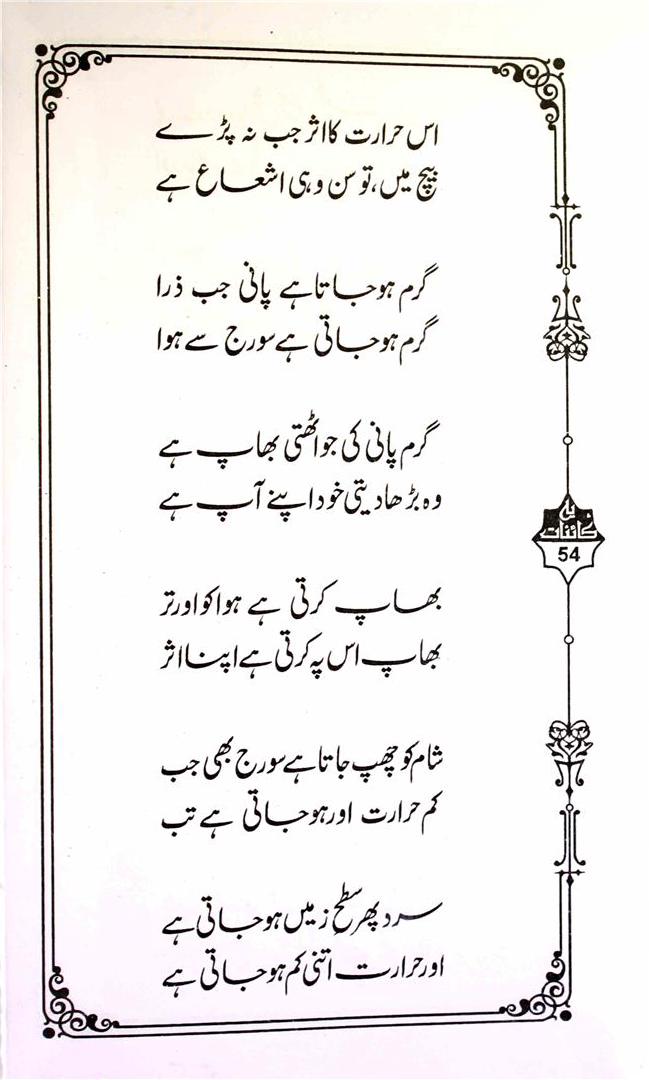 اس حرارت کا اثر جب نہ پڑے
بیچ میں، تو سن وہی اشعاع ہے
گرم ہو جاتا ہے پانی جب ذرا
گرم ہو جاتی ہے سورج سے ہوا
گرم پانی کی جو اٹھتی بھاپ ہے
وہ بڑھا دیتی خود اپنے آپ ہے
بھاپ کرتی ہے ہوا کو اور تر
بھاپ اس پہ کرتی ہے اپنا اثر
شام کو چھپ جاتا ہے سورج بھی جب
کم حرارت اور ہو جاتی ہے تب
سرد پھر سطحِ زمیں ہو جاتی ہے
اور حرارت اتنی کم ہو جاتی ہے
کائنات
54